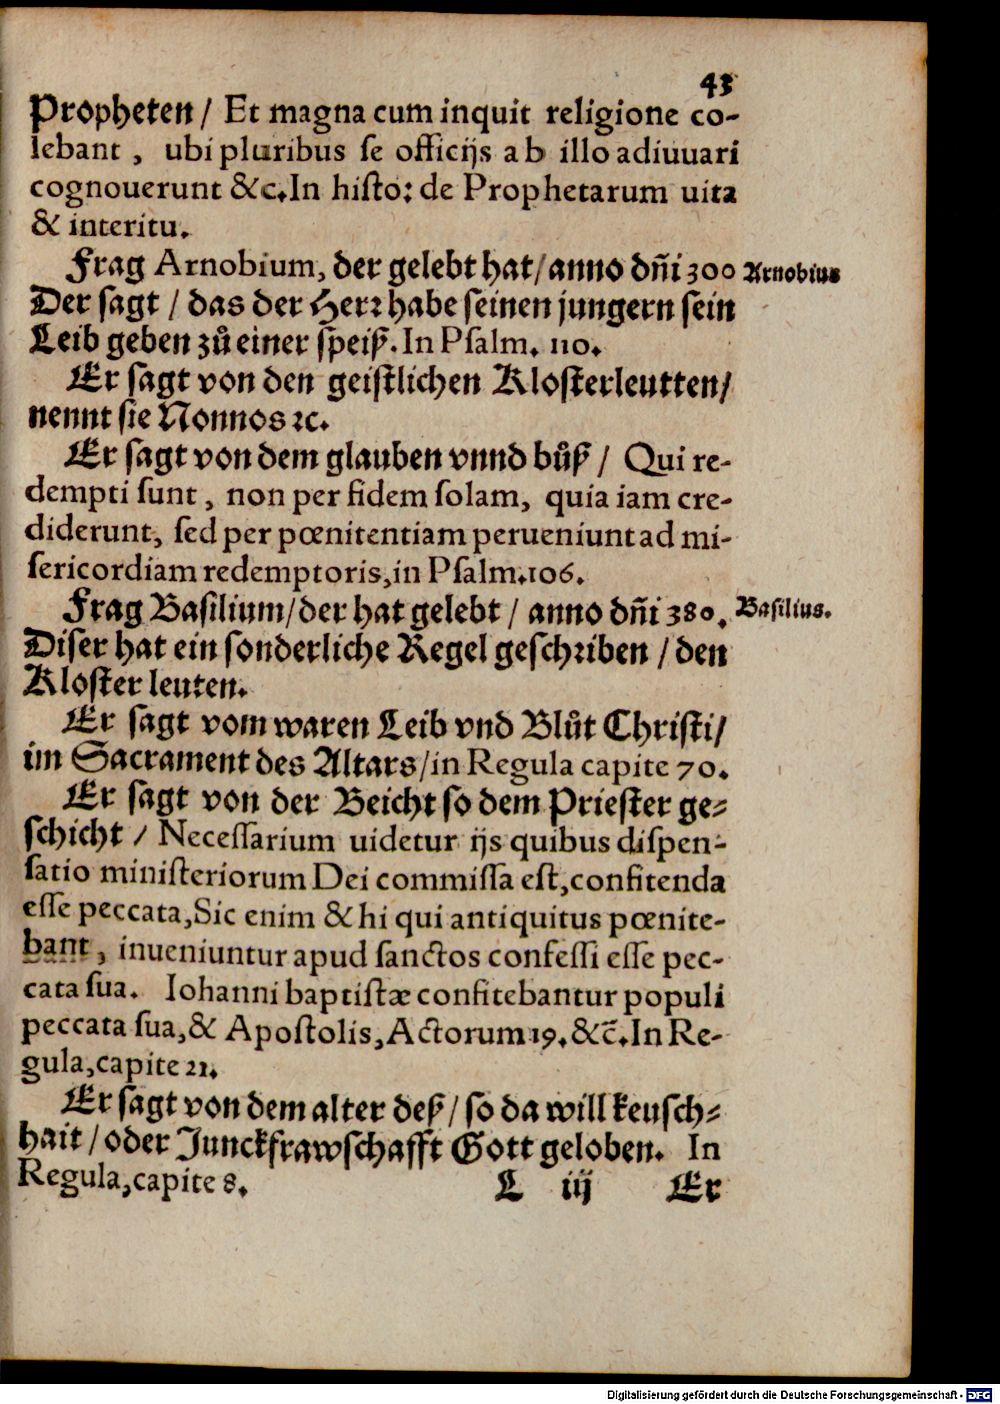 43
Propheten / Et magna cum inquit religione co-
lebant, ubi pluribus se officijs ab illo adiuuari
cognouerunt &c. In histo: de Prophetarum uita
& interitu.
Frag Arnobium, der gelebt hat / anno dñi 300 Arnobius
Der sagt / das der Herr habe seinen jungern sein
Leib geben zů einer speiß. In Psalm. 110.
Er sagt von den geistlichen Klosterleutten /
nennt sie Nonnos ꝛc.
Er sagt von dem glauben vnnd bůß / Qui re-
dempti sunt, non per fidem solam, quia iam cre-
diderunt, sed per pœnitentiam perueniunt ad mi-
sericordiam redemptoris, in Psalm. 106.
Frag Basilium / der hat gelebt / anno dñi 380. Basilius.
Diser hat ein sonderliche Regel geschriben / den
Kloster leuten.
Er sagt vom waren Leib vnd Blůt Christi /
im Sacrament des Altars / in Regula capite 70.
Er sagt von der Beicht so dem Priester ge-
schicht / Necessarium uidetur ijs quibus dispen-
satio ministeriorum Dei commissa est, confitenda
esse peccata, Sic enim & hi qui antiquitus pœnite-
bant, inueniuntur apud sanctos confessi esse pec-
cata sua. Iohanni baptistæ confitebantur populi
peccata sua, & Apostolis, Actorum 19. &c̄. In Re-
gula, capite 21.
Er sagt von dem alter deß / so da will keusch-
hait / oder Junckfrawschafft Gott geloben. In
Regula, capite 8.
L iij Er
Digitalisierung gefördert durch die Deutsche Forschungsgemeinschaft - DFG